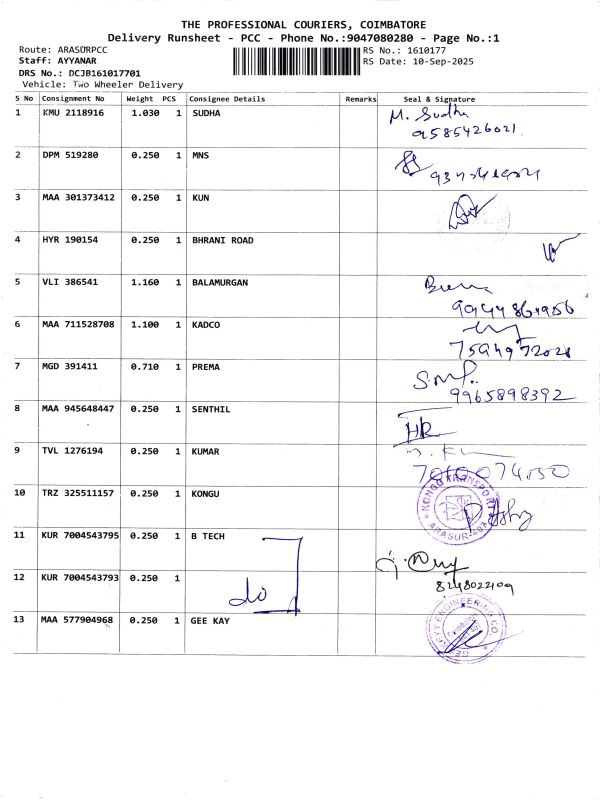 THE PROFESSIONAL COURIERS, COIMBATORE
Delivery Runsheet - PCC - Phone No.:9047080280 - Page No.:1
Route: ARASURPCC
RS No.: 1610177
Staff: AYYANAR
RS Date: 10-Sep-2025
DRS No.: DCJB161017701
Vehicle: Two Wheeler Delivery
S No Consignment No Weight PCS Consignee Details Remarks Seal & Signature
1 KMU 2118916 1.030 1 SUDHA M. Sudha
9585426021
2 DPM 519280 0.250 1 MNS
3 MAA 301373412 0.250 1 KUN
4 HYR 190154 0.250 1 BHRANI ROAD
5 VLI 386541 1.160 1 BALAMURGAN
6 MAA 711528708 1.100 1 KADCO
7 MGD 391411 0.710 1 PREMA
9965898392
8 MAA 945648447 0.250 1 SENTHIL
HR
9 TVL 1276194 0.250 1 KUMAR
10 TRZ 325511157 0.250 1 KONGU KONGU TRANSPORT
11 KUR 7004543795 0.250 1 B TECH
do
12 KUR 7004543793 0.250 1
8248022109
13 MAA 577904968 0.250 1 GEE KAY